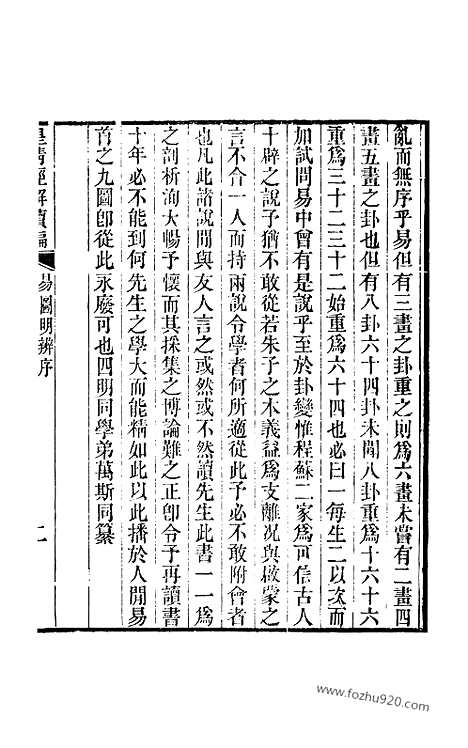 亂而無序乎易但有三畫之卦重之則爲六畫未嘗有二畫四
畫五畫之卦也但有八卦六十四卦未聞八卦重爲十六十六
重爲三十二三十二始重爲六十四也必曰一每生二以次而
加試問易中曾有是說乎至於卦變惟程蘇二家爲可信古人
十辟之說子猶不敢從若朱子之本義益爲支離况與啟蒙之
言不合一人而持兩說令學者何所適從此予必不敢附會者
也凡此諸說閒與友人言之或然或不然讀先生此書一一爲
之剖析洵大暢予懷而其採集之博論難之正卽令予再讀書
十年必不能到何先生之學大而能精如此以此播於人閒易
首之九圖卽從此永廢可也四明同學弟萬斯同纂
皇清經解續編 易圖明辨序 二
www.fozhu920.com